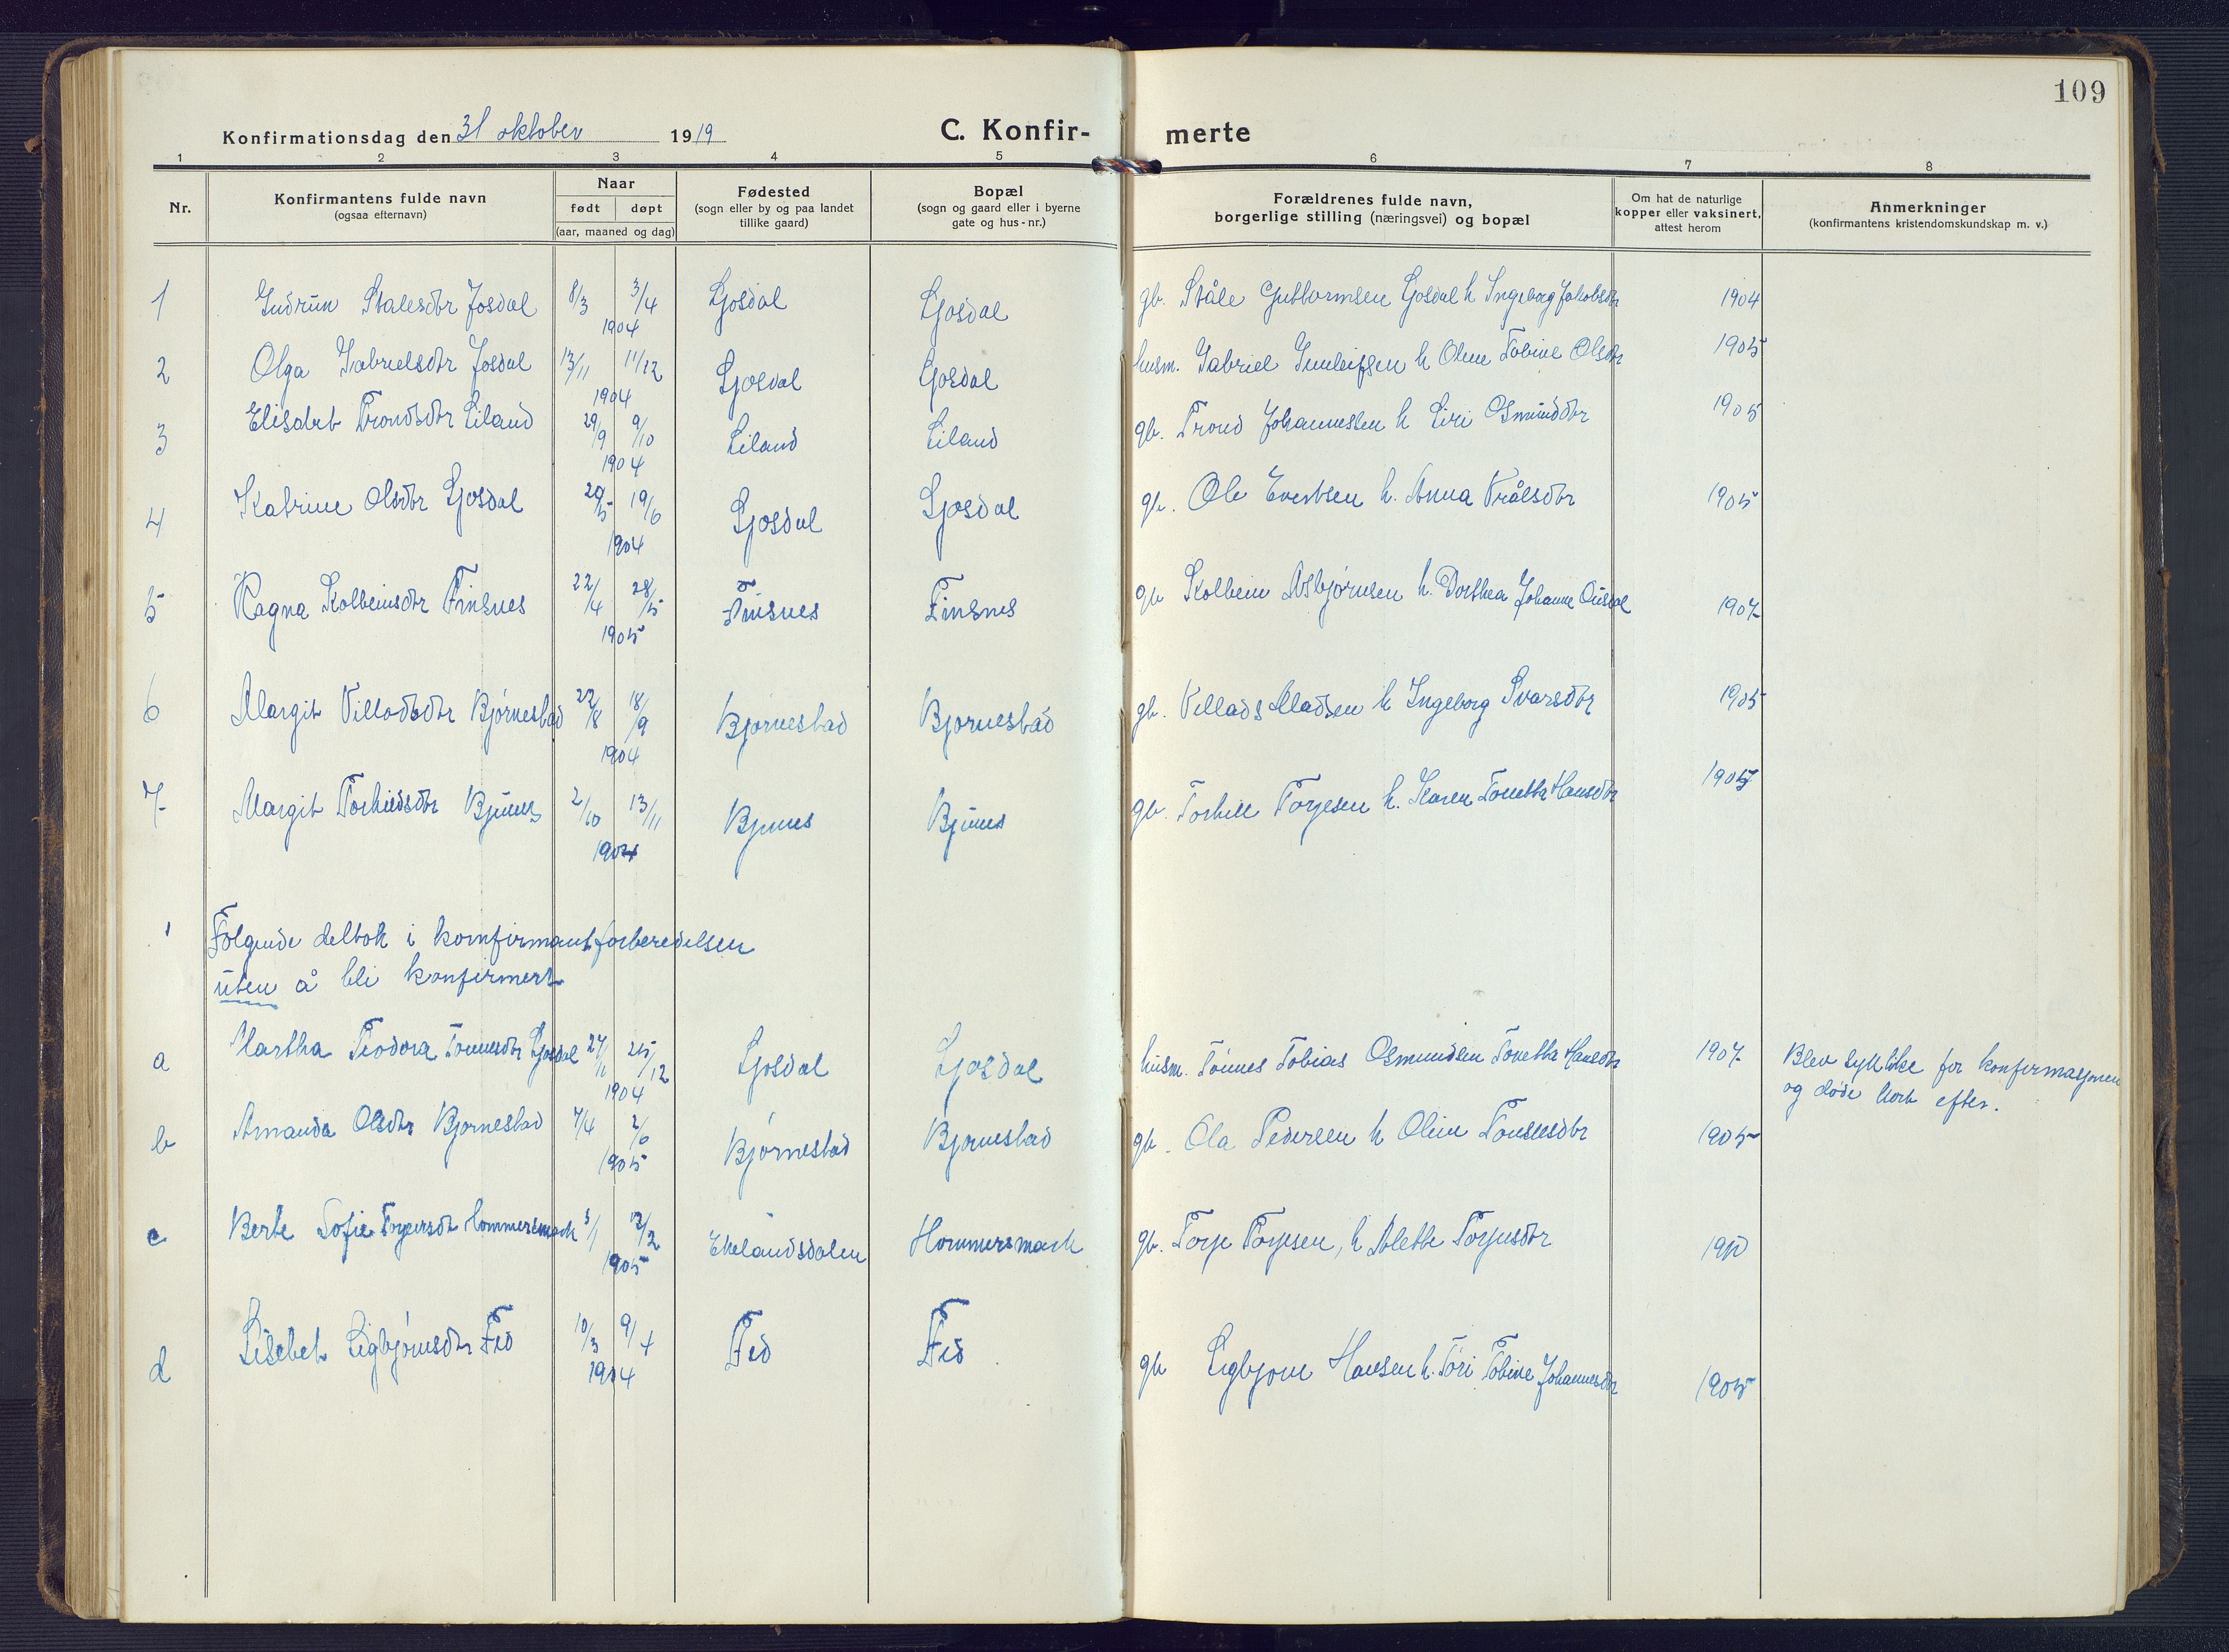 109
Konfirmationsdag den 31 oktober 1919
C. Konfir- merte
1 2 3 4 5 6 7 8
Nr.
Konfirmantens fulde navn
(ogsaa efternavn)
Naar
født døpt
(aar, maaned og dag)
Fødested
(sogn eller by og paa landet
tillike gaard)
Bopæl
(sogn og gaard eller i byerne
gate og hus-nr.)
Forældrenes fulde navn,
borgerlige stilling (næringsvei) og bopæl
Om hat de naturlige
kopper eller vaksinert,
attest herom
Anmerkninger
(konfirmantens kristendomskundskap m. v.)
1 Gudrun Stalesdtr Josdal 8/3 3/4 Gjosdal Gjosdal gb. Ståle Guttormsen Gjosdal h Ingeborg Jakobsdtr 1904
1904
2 Olga Gabrielsdtr Josdal 13/11 11/12 Gjosdal Gjosdal husm. Gabriel Gunleifsen h Oline Tobine Olsdtr 1905
1904
3 Elisabet Trondsdtr Eiland 29/9 9/10 Eiland Eiland gb. Trond Johannesen h Siri Osmunddtr 1905
1904
4 Katrine Olsdtr Gjosdal 29/5 19/6 Gjosdal Gjosdal gb. Ole Evertsen h. Anna Trålsdtr 1905
1904
5 Ragna Kolbeinsdtr Finsnes 22/4 28/5 Finsnes Finsnes gb Kolbein Asbjørnsen h. Dorthea Johanne Ousdal 1907
1905
6 Margit Villadsdtr Bjørnestad 22/8 18/9 Bjornestad Bjornestad gb. Villads Madsen h Ingeborg Ivarsdtr 1905
1904
7 Margit Torkildsdtr Bjunes 2/10 13/11 Bjunes Bjunes gb. Torkill Torjesen h. Karen Tonetta Hansdtr
1904
Følgende deltok i komfirmantforberedelsen
uten å bli konfirmert
a Martha Teodora Tonnesdtr Gjosdal 27/11 25/12 Gjosdal Gjosdal husm. Tönnes Tobias Osmundsen Tonetta Hansdtr 1907 Blev syk like for konfirmasjonen
1904 og döde kort efter.
b Amanda Olsdtr Bjornestad 7/4 2/6 Bjørnestad Bjornestad gb. Ola Pedersen h Oline Tönsesdtr 1905
1905
c Berte Sofie Torjersdtr Hommersmark 3/1 12/2 Ekelandsdalen Hommersmark gb. Torje Torjesen, h Alette Torjusdtr 1910
1905
d Lisebet Sigbjørnsdtr Fed 10/3 9/4 Fed Fed gb Sigbjorn Hansen h. Töri Tobine Johannesdtr 1905
1904